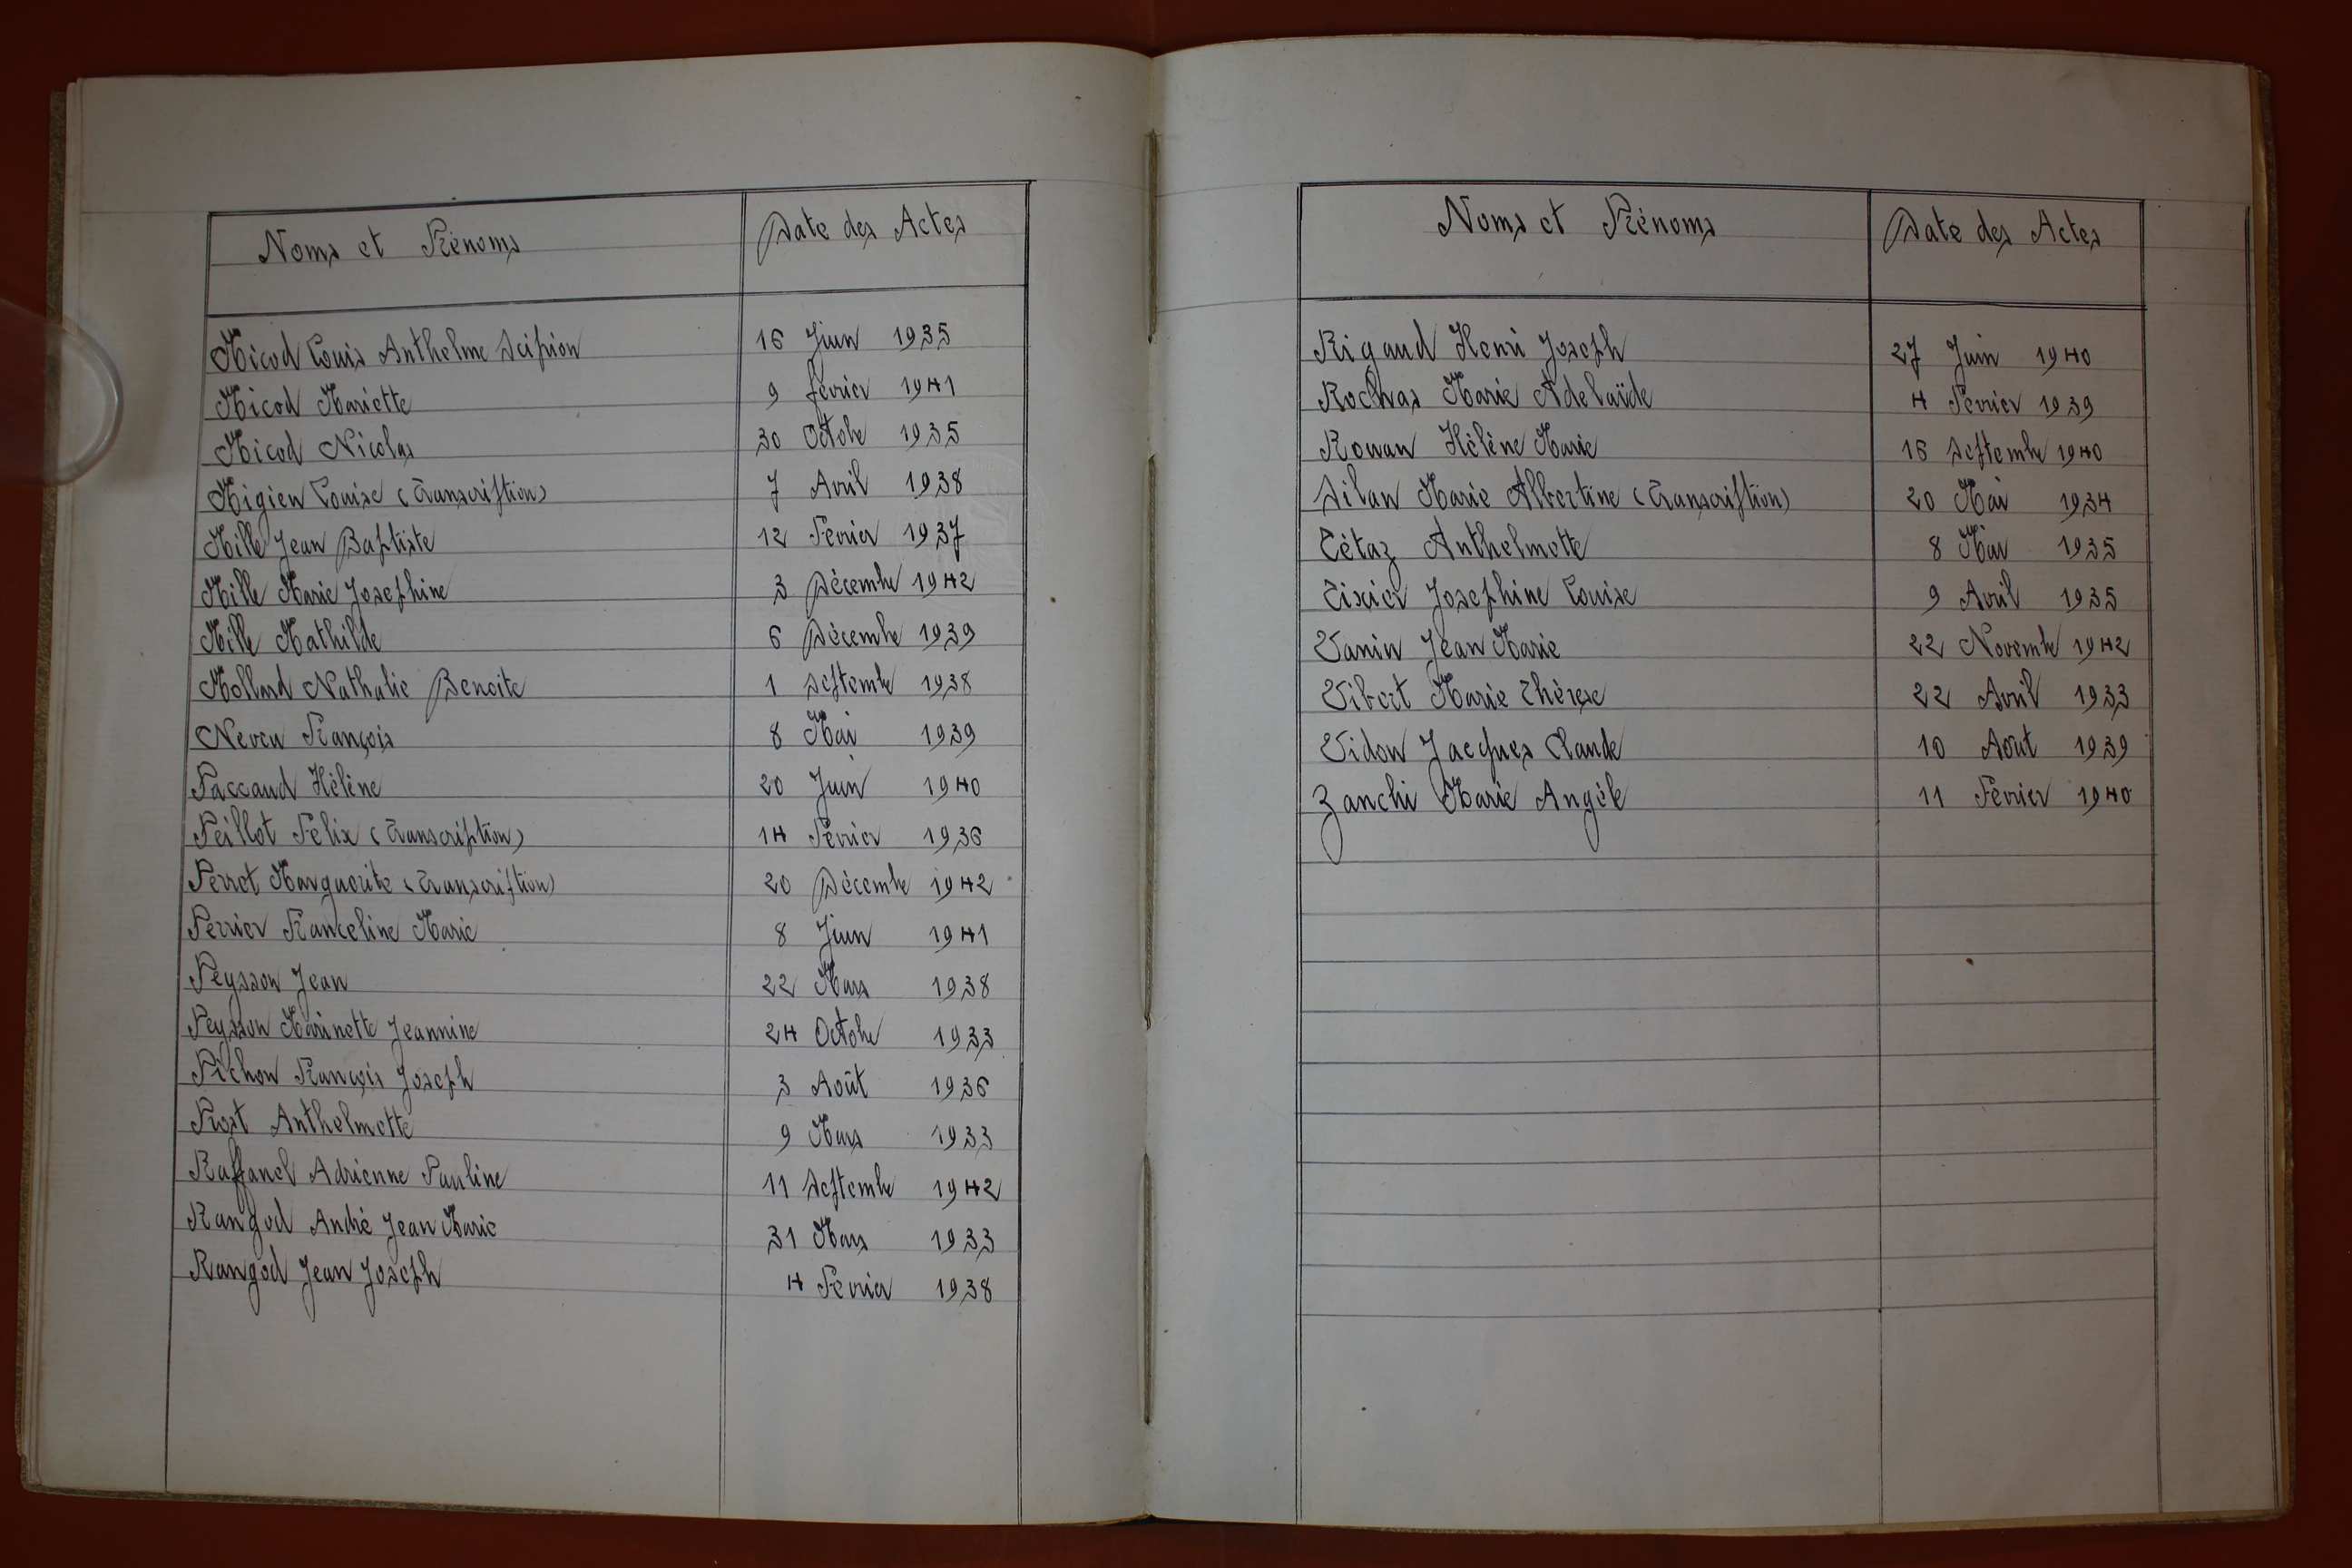 Noms et Prénoms Date des Actes
Micod Louis Anthelme Scipion 16 Juin 1935
Micod Mariette 9 février 1941
Micod Nicolas 30 Octobre 1935
Migieu Louise (Transcription) 7 Avril 1938
Mille Jean Baptiste 12 Février 1937
Mille Marie Josephine 3 Décembre 1942
Mille Mathilde 6 Décembre 1939
Mollard Nathalie Benoite 1 Septembre 1938
Neveu François 8 Mai 1939
Paccaud Hélène 20 Juin 1940
Peillot Félix (Transcription) 14 Février 1936
Perret Marguerite (Transcription) 20 Décembre 1942
Perrier Franceline Marie 8 Juin 1941
Peysson Jean 22 Mars 1938
Peysson Marinette Jeannine 24 Octobre 1933
Pichon François Joseph 3 Août 1936
Prost Anthelmette 9 Mars 1933
Raffanel Adrienne Pauline 11 Septembre 1942
Rangod André Jean Marie 31 Mars 1933
Rangod Jean Joseph 4 Février 1938
Noms et Prénoms Date des Actes
Rigaud Henri Joseph 27 Juin 1940
Rochas Marie Adelaïde 4 Février 1939
Rouan Hélène Marie 16 Septembre 1940
Silan Marie Albertine (Transcription) 20 Mai 1934
Tétaz Anthelmette 8 Mai 1935
Tixier Josephine Louise 9 Avril 1935
Vanin Jean Marie 22 Novembre 1942
Vibert Marie Thérèse 22 Avril 1933
Vidon Jacques Claude 10 Août 1939
Zanchi Marie Angèle 11 Février 1940